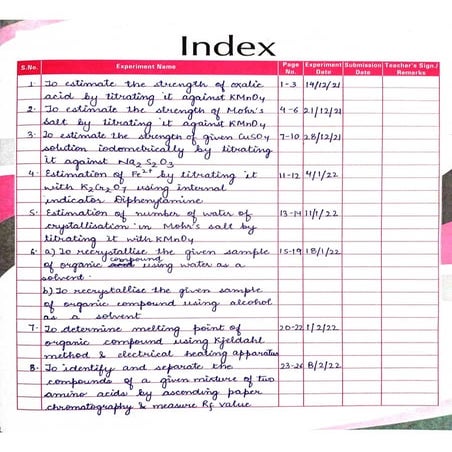 Index
S.No. Experiment Name Page No. Experiment Date Submission Date Teacher's Sign./ Remarks
1. To estimate the strength of oxalic 1-3 14/12/21
acid by titrating it against KMnO4
2. To estimate the strength of Mohr's 4-6 21/12/21
salt by titrating it against KMnO4
3. To estimate the strength of given CuSO4 7-10 28/12/21
solution iodometrically by titrating
it against Na2S2O3
4. Estimation of Fe2+ by titrating it 11-12 4/1/22
with K2Cr2O7 using internal
indicator Diphenylamine
5. Estimation of number of water of 13-14 11/1/22
crystallisation in Mohr's salt by
titrating it with KMnO4
6. a) To recrystallise the given sample 15-19 18/1/22
of organic compound using water as a
solvent.
b) To recrystallise the given sample
of organic compound using alcohol
as a solvent
7. To determine melting point of 20-22 1/2/22
organic compound using Kjeldahl
method & electrical heating apparatus
8. To identify and separate the 23-26 8/2/22
compounds of a given mixture of two
amino acids by ascending paper
chromatography & measure Rf value